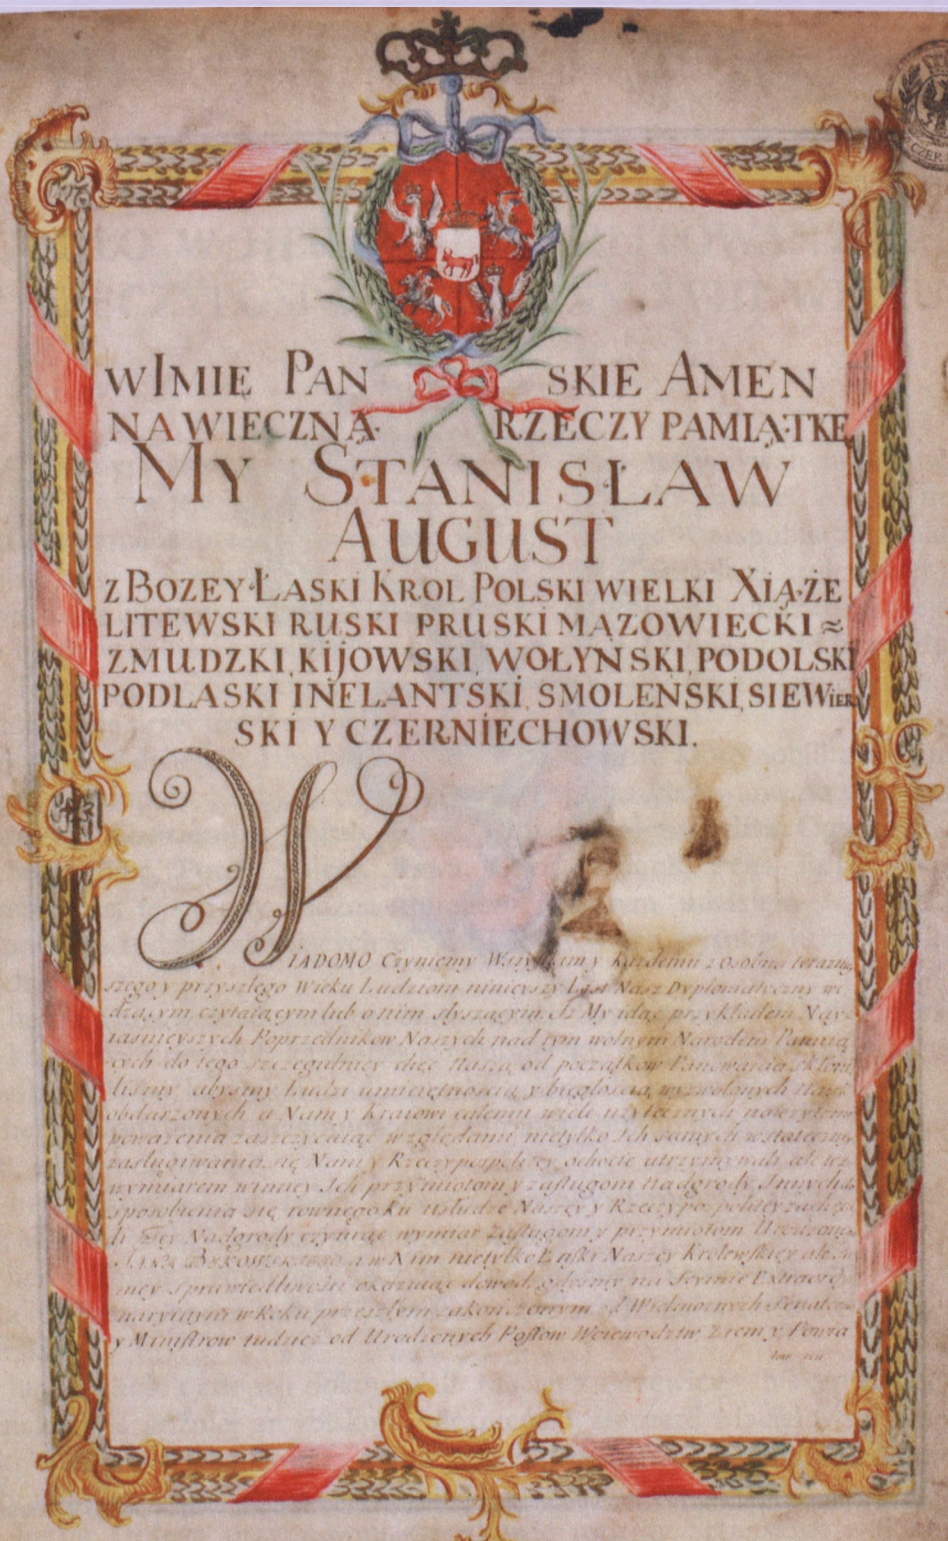 W IMIĘ PAN SKIE AMEN
NA WIECZNĄ RZECZY PAMIĄTKE
MY STANISŁAW
AUGUST
Z BOZEY ŁASKI KROL POLSKI WIELKI XIĄŻE
LITEWSKI RUSKI PRUSKI MAZOWIECKI ≈
ZMUDZKI, KIJOWSKI, WOŁYNSKI, PODOLSKI
PODLASKI INFLANTSKI, SMOLENSKI, SIEWIER
SKI Y CZERNIECHOWSKI.
WIADOMO Czyniemy Wszystkim y każdemu z osobna teraznie
szego y przyszłego Wieku Ludziom ninieyszy List Nasz Dyplomatyczny wi
dzącym, czytaiącym lub o nim słyszącym. Iż My idąc przykładem Nay
iasnieyszych Poprzednikow Naszych nad tym wolnym Narodem Panuią
cych do tego szczegulniey chęć Naszą od początkow Panowania skłoni
liśmy, abyśmy Ludzi umieiętnością y biegłością wyzwolonych Nauk
obdarzonych a Nam y Kraiowi całemu wiele użytecznych
poważenia zaszczycaiąc względami nietylko Ich samych w statecznym
zasługiwania się Nam y Rzeczypospolitey ochocie utrzymywali, ale też
wymiarem winney Ich przymiotom y zasługom Nadgrody, Innych do
sposobienia się rownego ku usłudze Naszey y Rzeczypospolitey zachęca
li. Tey Nadgrody czyniąc wymiar Zasługom y przymiotom Urodzonego
a w Nim nietylko Łaski Naszey Krolewskiey, ale
ney sprawiedliwości okazuiąc dowod, gdyśmy na Seymie Extraordy
naryinym w Roku przeszłym zakończonym od Wielmożnych Senatorow
y Ministrow tudzież od Urodzonych Posłow Woiewodztw Ziem y Powia
tow